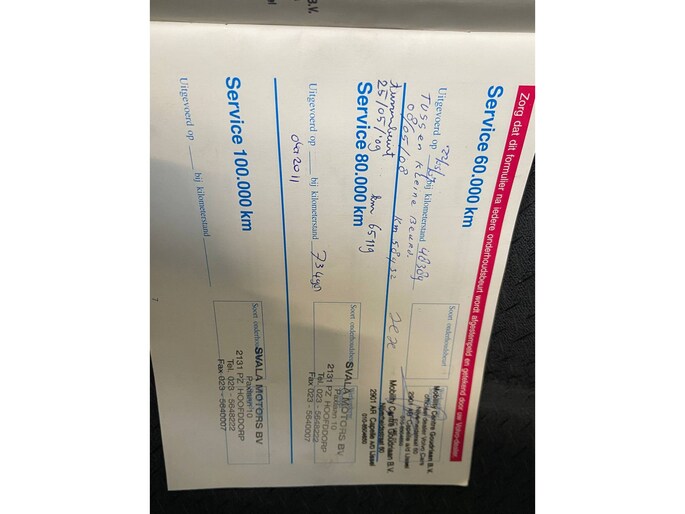 Zorg dat dit formulier na iedere onderhoudsbeurt wordt afgestempeld en getekend door uw Volvo-dealer.
Service 60.000 km
Uitgevoerd op bij kilometerstand 48309
Tussen kleine Beurt.
08/05/08 km 58432
Soort onderhoudsbeurt
Mobility Centre Goudriaan B.V.
2901 AR Capelle a/d IJssel
tussenbeurt
25/05/'09 km 65119
Mobility Centre Goudriaan B.V.
2901 AR Capelle a/d IJssel
Service 80.000 km
Uitgevoerd op bij kilometerstand 73490
okt 2011
Soort onderhoudsbeurt
SVALA MOTORS BV
Paxlaan 10
2131 PZ HOOFDDORP
Tel. 023 - 5648222
Fax 023 - 5640007
Service 100.000 km
Uitgevoerd op bij kilometerstand
Soort onderhoudsbeurt
SVALA MOTORS BV
Paxlaan 10
2131 PZ HOOFDDORP
Tel. 023 - 5648222
Fax 023 - 5640007
7